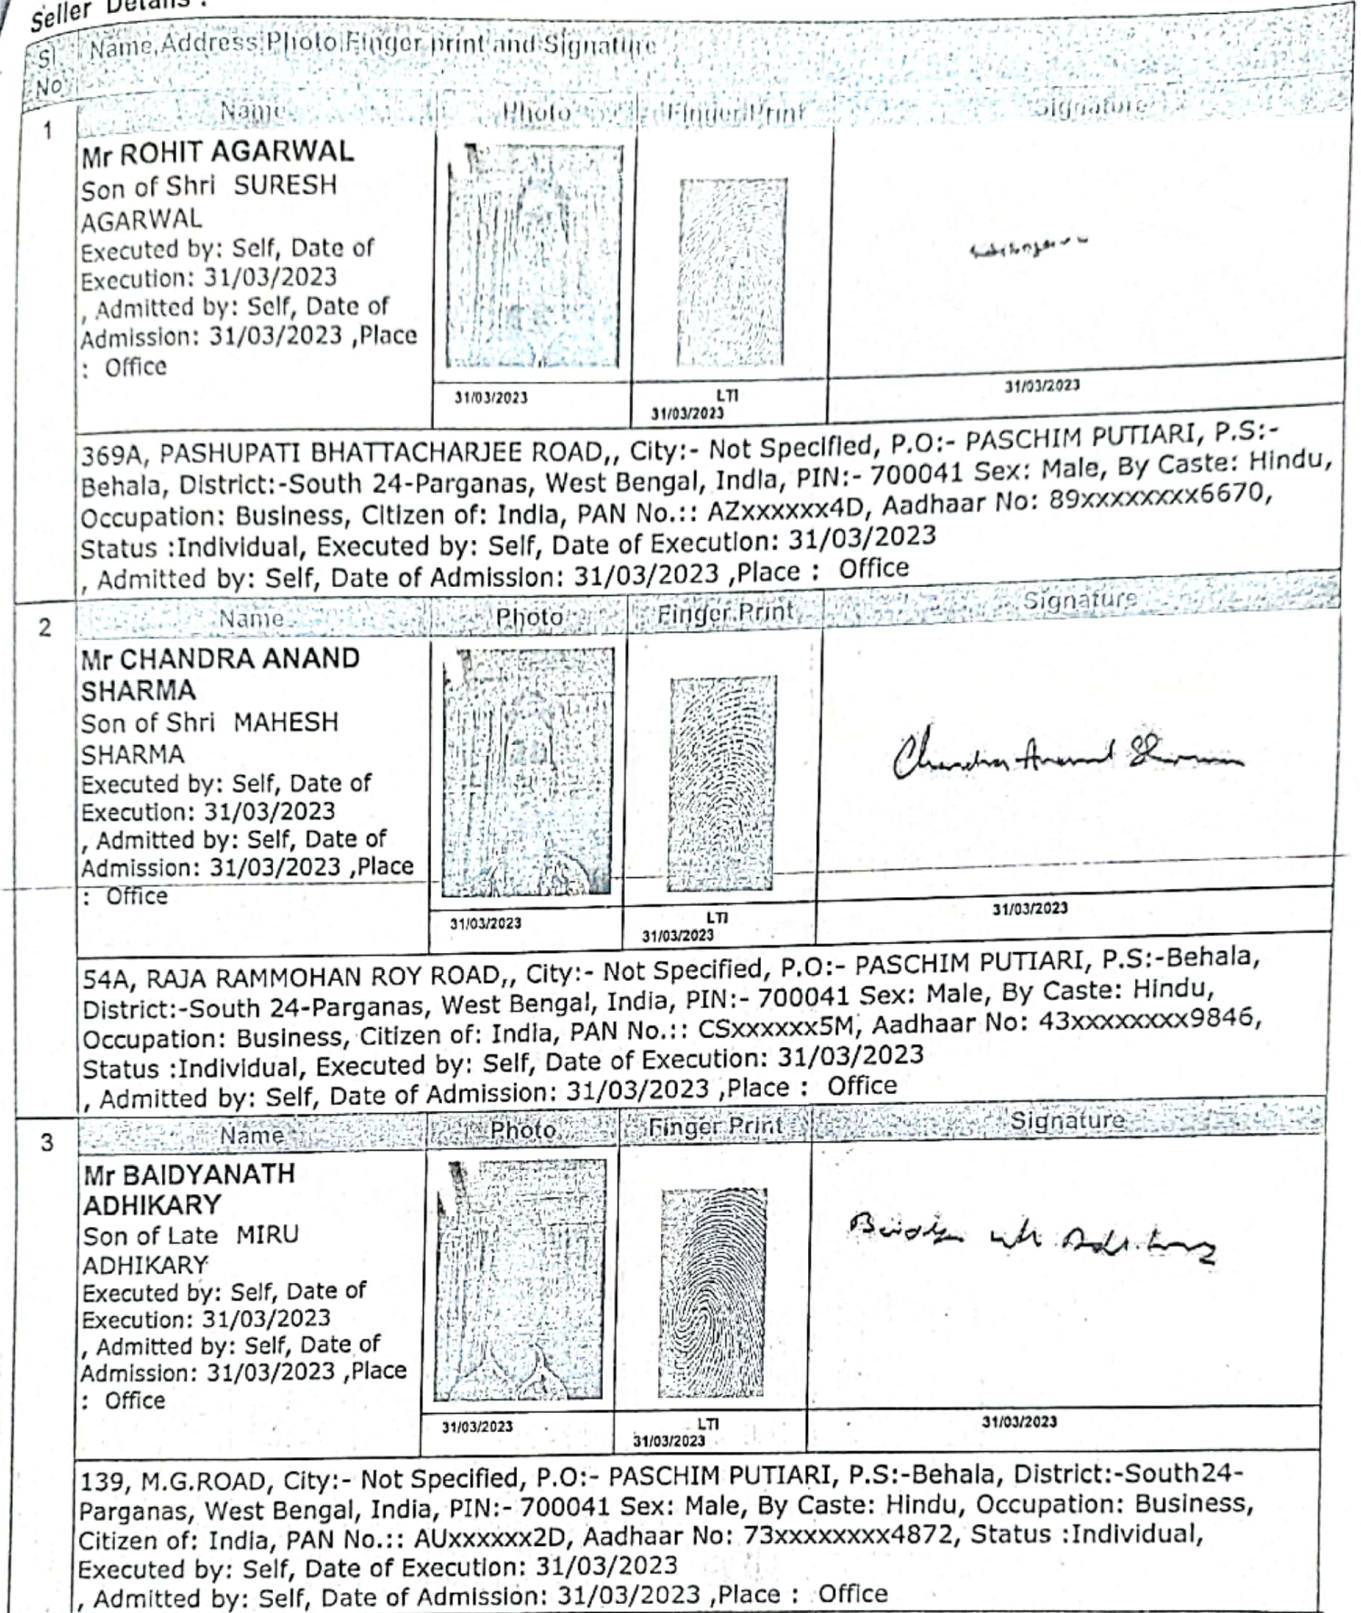 Seller Details :
Sl Name,Address,Photo,Finger print and Signature
No
Name Photo Finger Print Signature
1
Mr ROHIT AGARWAL
Son of Shri SURESH
AGARWAL
Executed by: Self, Date of
Execution: 31/03/2023
, Admitted by: Self, Date of
Admission: 31/03/2023 ,Place
: Office
31/03/2023 LTI 31/03/2023
31/03/2023
369A, PASHUPATI BHATTACHARJEE ROAD,, City:- Not Specified, P.O:- PASCHIM PUTIARI, P.S:-
Behala, District:-South 24-Parganas, West Bengal, India, PIN:- 700041 Sex: Male, By Caste: Hindu,
Occupation: Business, Citizen of: India, PAN No.:: AZxxxxxx4D, Aadhaar No: 89xxxxxxxx6670,
Status :Individual, Executed by: Self, Date of Execution: 31/03/2023
, Admitted by: Self, Date of Admission: 31/03/2023 ,Place : Office
2 Name Photo Finger Print Signature
Mr CHANDRA ANAND
SHARMA
Son of Shri MAHESH
SHARMA
Executed by: Self, Date of
Execution: 31/03/2023
, Admitted by: Self, Date of
Admission: 31/03/2023 ,Place
: Office
Chandra Anand Sharma
31/03/2023 LTI 31/03/2023
31/03/2023
54A, RAJA RAMMOHAN ROY ROAD,, City:- Not Specified, P.O:- PASCHIM PUTIARI, P.S:-Behala,
District:-South 24-Parganas, West Bengal, India, PIN:- 700041 Sex: Male, By Caste: Hindu,
Occupation: Business, Citizen of: India, PAN No.:: CSxxxxxx5M, Aadhaar No: 43xxxxxxxx9846,
Status :Individual, Executed by: Self, Date of Execution: 31/03/2023
, Admitted by: Self, Date of Admission: 31/03/2023 ,Place : Office
3 Name Photo Finger Print Signature
Mr BAIDYANATH
ADHIKARY
Son of Late MIRU
ADHIKARY
Executed by: Self, Date of
Execution: 31/03/2023
, Admitted by: Self, Date of
Admission: 31/03/2023 ,Place
: Office
31/03/2023 LTI 31/03/2023
31/03/2023
139, M.G.ROAD, City:- Not Specified, P.O:- PASCHIM PUTIARI, P.S:-Behala, District:-South24-
Parganas, West Bengal, India, PIN:- 700041 Sex: Male, By Caste: Hindu, Occupation: Business,
Citizen of: India, PAN No.:: AUxxxxxx2D, Aadhaar No: 73xxxxxxxx4872, Status :Individual,
Executed by: Self, Date of Execution: 31/03/2023
, Admitted by: Self, Date of Admission: 31/03/2023 ,Place : Office